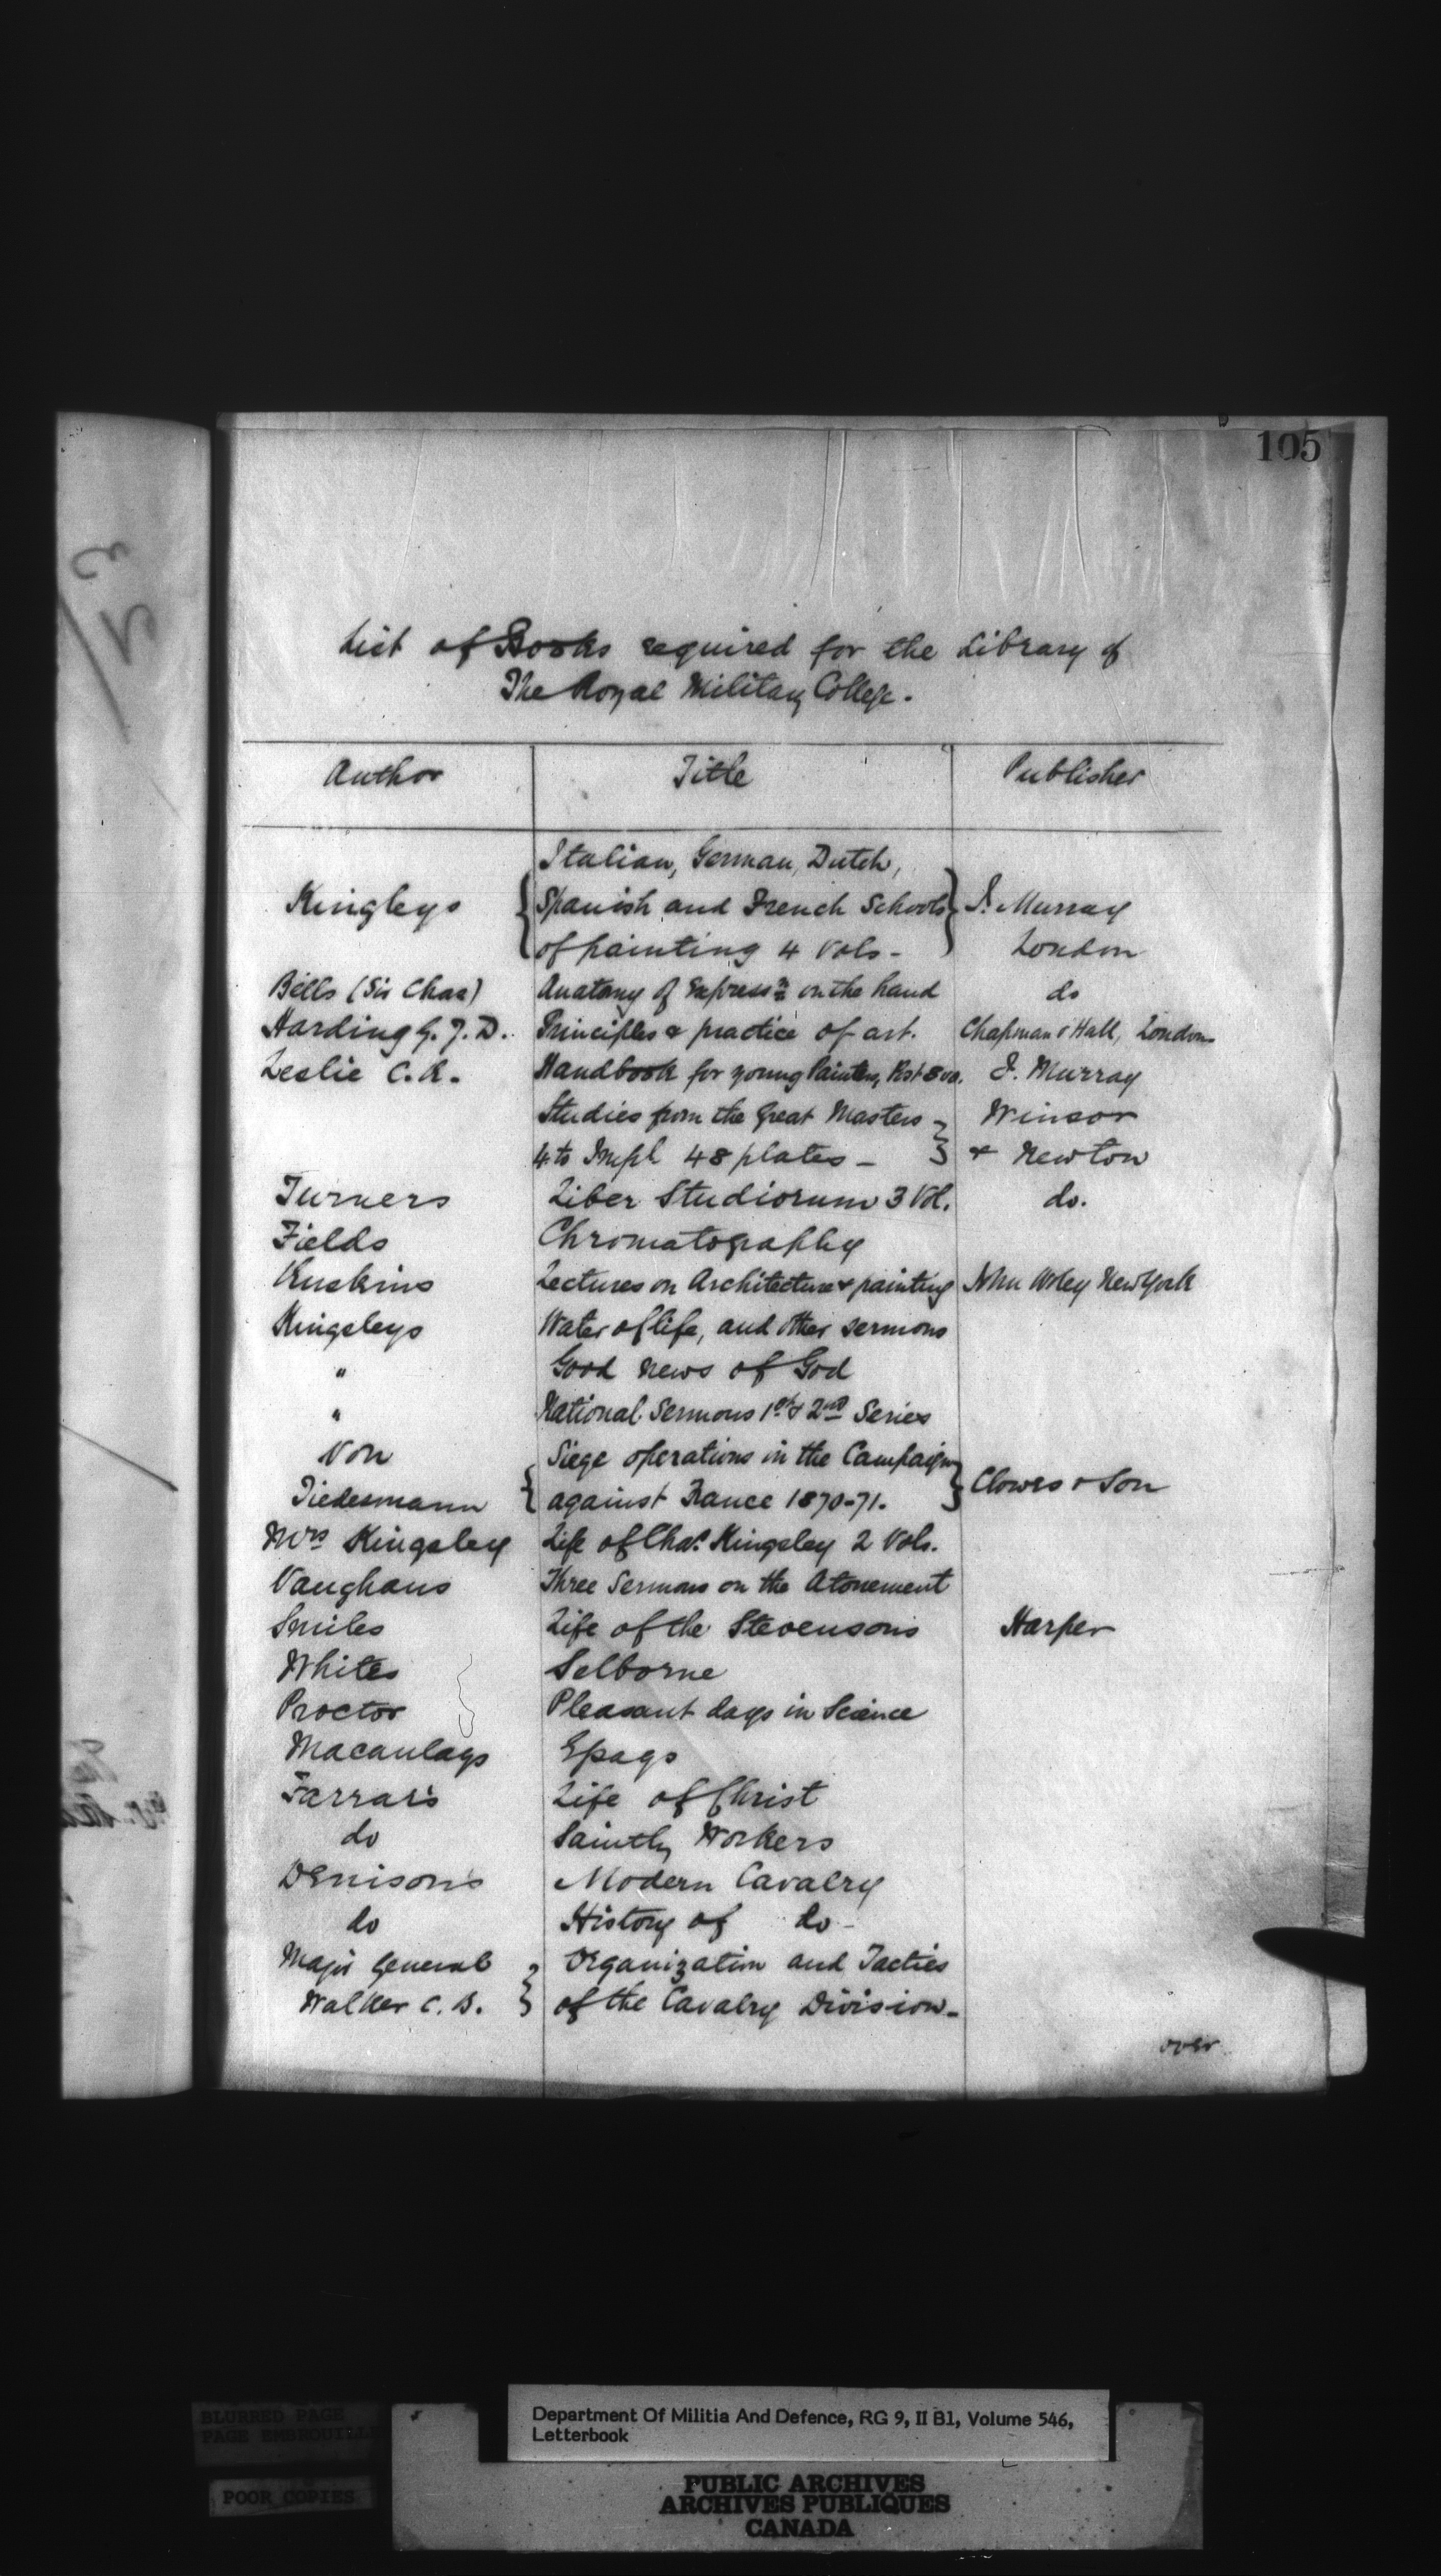 105
List of Books required for the Library of
The Royal Military College.
Author Title Publisher
Italian, German, Dutch,
Kingleys Spanish and French Schools J. Murray
of painting 4 Vols - London
Bells (Sir Chas) Anatomy of Expressn on the hand do
Harding G. J. D. Principles & practice of art. Chapman & Hall, London.
Leslie C. R. Handbook for young Painters, Post 8vo. J. Murray
Studies from the Great Masters - Winsor
4to Impl 48 plates - & Newton
Turners Liber Studiorum 3 Vol. do.
Fields Chromatography
Ruskins Lectures on Architecture & painting John Wiley New York
Kingsleys Water of life, and other sermons
" Good news of God
" National Sermons 1st & 2nd Series
Von Siege operations in the Campaign
Tiedesmann against France 1870-71. Clowes & Son
Mrs Kingsley Life of Chas. Kingsley 2 Vols.
Vaughans Three Sermons on the Atonement
Smiles Life of the Stevensons Harper
Whites Selborne
Proctor Pleasant days in Science
Macaulays Essays
Farrar's Life of Christ
do Saintly Workers
Denison's Modern Cavalry
do History of do -
Major General Organization and Tactics
Walker C. B. of the Cavalry Division -
over
BLURRED PAGE
PAGE EMBROUILLÉE
POOR COPIES
Department Of Militia And Defence, RG 9, II B1, Volume 546,
Letterbook
PUBLIC ARCHIVES
ARCHIVES PUBLIQUES
CANADA